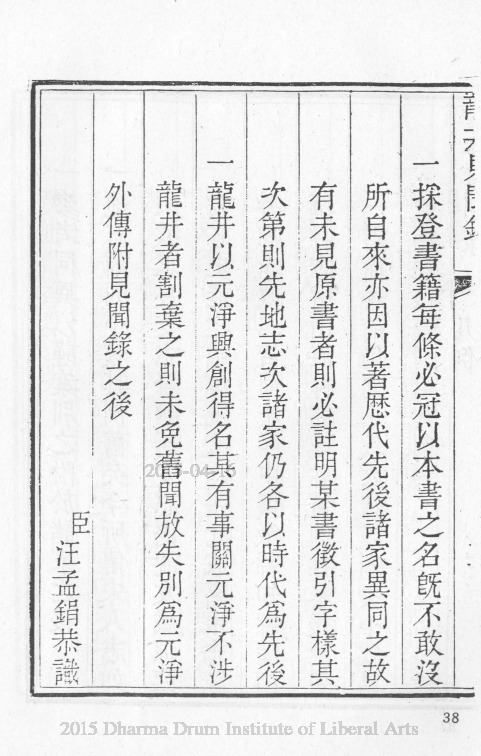 龍井見聞錄
一採登書籍每條必冠以本書之名旣不敢沒
所自來亦因以著歷代先後諸家異同之故
有未見原書者則必註明某書徵引字樣其
次第則先地志次諸家仍各以時代爲先後
一龍井以元淨興創得名其有事關元淨不涉
龍井者割棄之則未免舊聞放失別爲元淨
外傳附見聞錄之後
臣汪孟鋗恭識
38
2015 Dharma Drum Institute of Liberal Arts